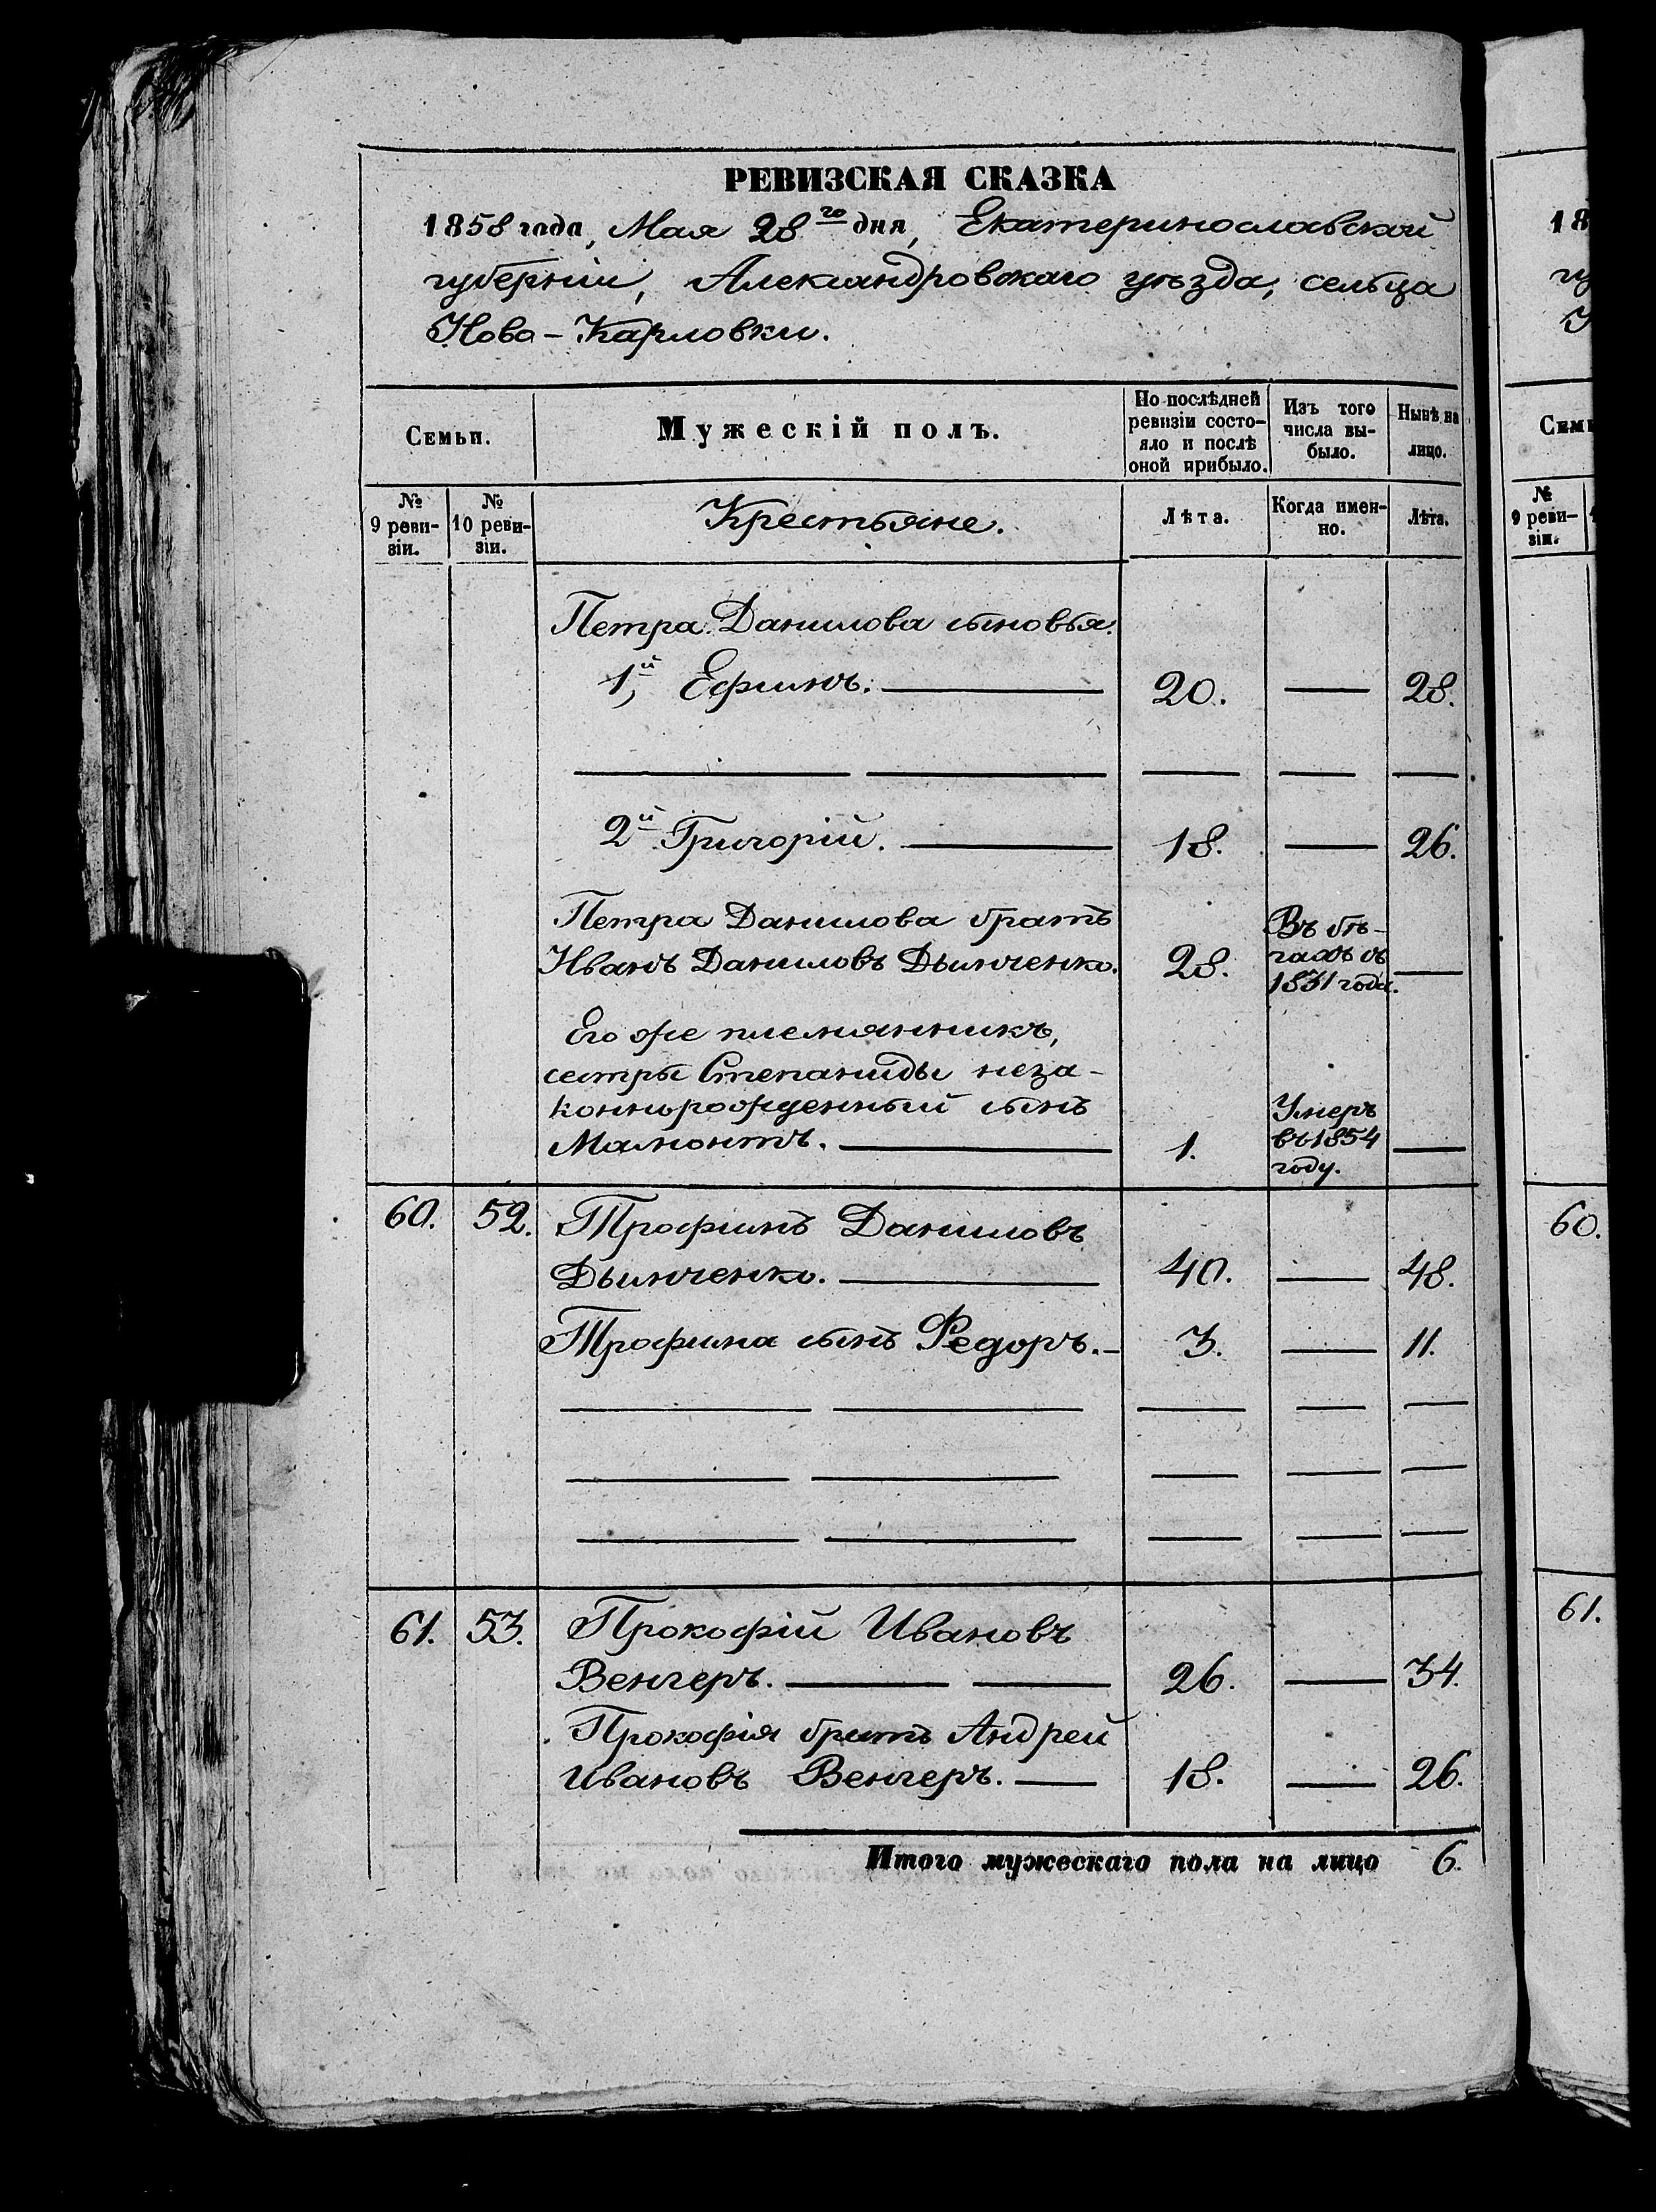 РЕВИЗСКАЯ СКАЗКА
1858 года, Мая 28го дня, Екатеринославской
губерніи, Александровскаго уѣзда, сельца
Ново-Карловки.
Семьи.
Мужескій полъ.
По послѣдней
ревизіи состо-
яло и послѣ
оной прибыло.
Изъ того
числа вы-
было.
Нынѣ на
лицо.
№
9 реви-
зіи.
№
10 реви-
зіи.
Крестьяне.
Лѣта.
Когда имен-
но.
Лѣта.
Петра Данилова сыновья:
1й, Ефимъ. 20. — 28.
2й Григорій. 18. — 26.
Петра Данилова братъ
Иванъ Даниловъ Дымченко. 28. —
Въ бѣ-
гахъ съ
1831 года.
Его же племянникъ,
сестры Степаниды неза-
коннорожденный сынъ
Мамонтъ. 1. —
Умеръ
въ 1854
году.
60. 52. Трофимъ Даниловъ
Дымченко. 40. — 48.
Трофима сынъ Федоръ. 3. — 11.
61. 53. Прокофій Ивановъ
Венгеръ. 26. — 34.
Прокофія братъ Андрей
Ивановъ Венгеръ. 18. — 26.
Итого мужескаго пола на лицо 6.
18
Семь
№
9 реви-
зіи.
60.
61.